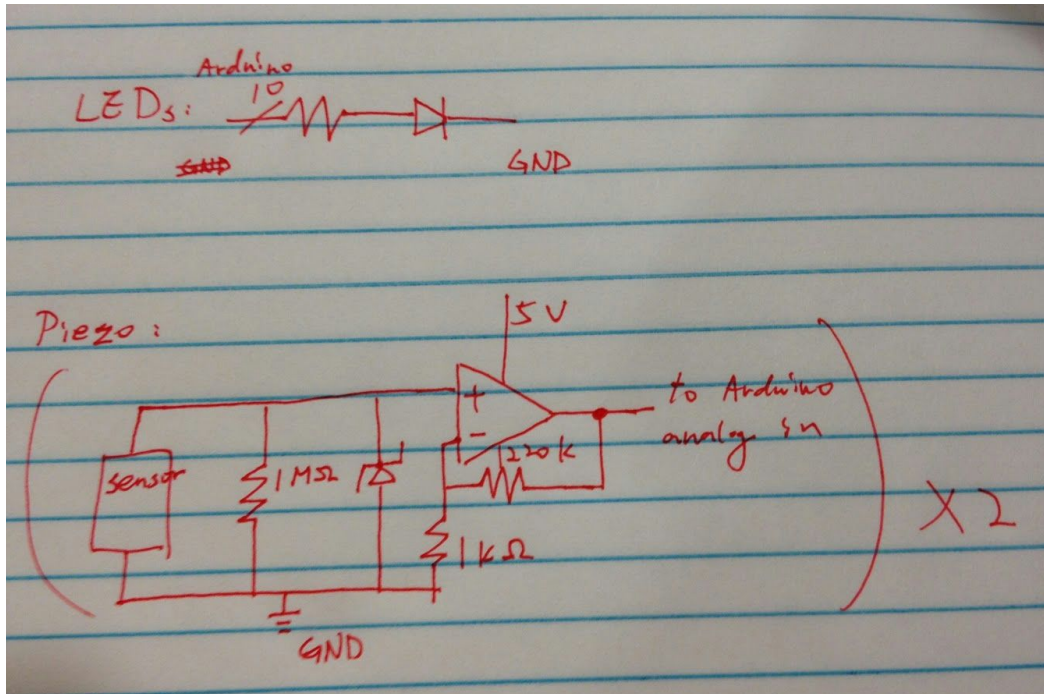 Arduino
LEDs: 10
GND
GND
5V
Piezo:
+
to Arduino
analog in
-
220k
sensor
1MΩ
X2
1kΩ
GND